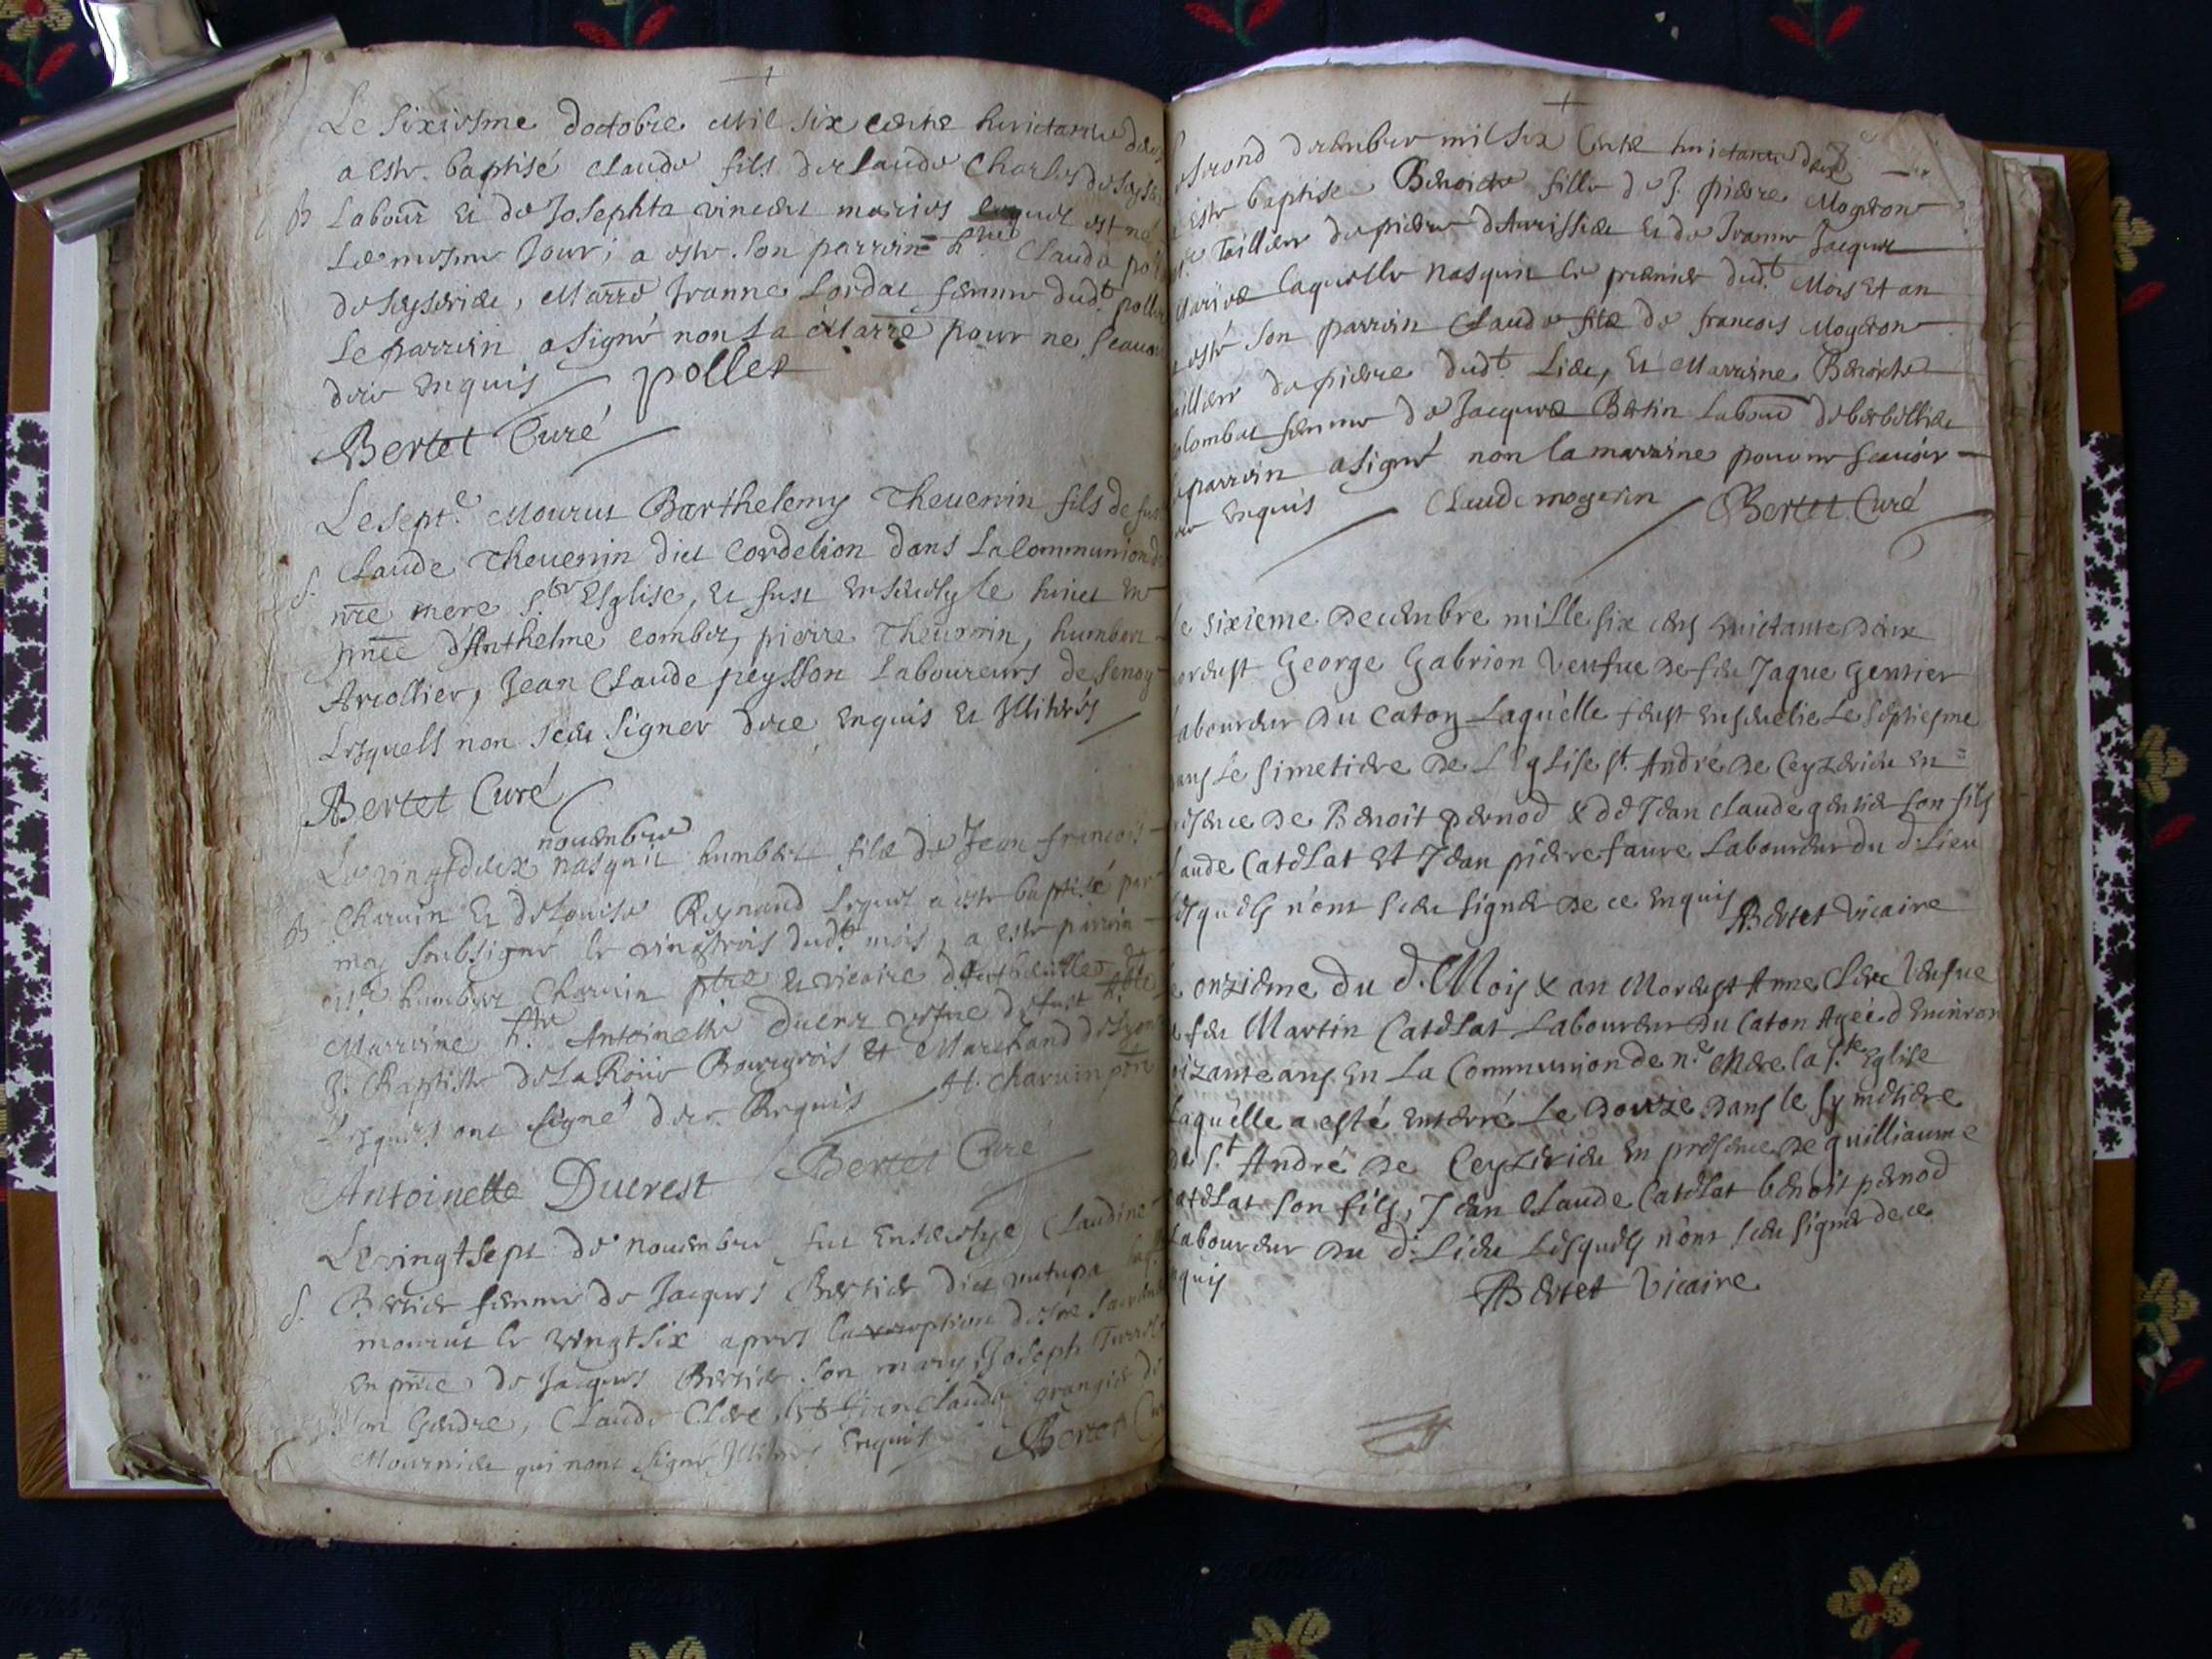 Le sixiesme doctobre Mil six cents huictante deux
a este baptisé claude fils de claude Charles de
B Labour et de Josephta vincent maries lequel est né
Le mesme Jour, a este son parrain h. Claude
de seyserieu, Marre Jeanne Lordat femme dudt pollet
Le parrin a signé non La Marre pour ne scavoir
dece enquis pollet
Bertet Curé
Le septe Mourut Barthelemy Thevenin fils de
S. Claude Thevenin dict Cordelion dans La Communion de
nre mere Ste Esglise, et fust ensevely le huict en
pnce d'Anthelme combet, pierre Thevenin, humbert
Arcollier, Jean Claude peysson Laboureurs de senoy
Lesquels non sceu signer dece enquis et Illiterés
Bertet Curé
novembre
Le vingtdeux nasquit humbert fils de Jean francois
B Charvin et de Louise Reynaud Lequel a este baptisé par
moy soubsigné le vingttrois dudt mois, a este parrin
mre humbert Charvin ptre et vicaire
Marrine h. Antoinette Ducrez vefue de
J. Baptiste de La Roüe Bourgeois et Marchand de Lyon
Lesquels ont signé dece Enquis H. charvin ptre
Antoinette Ducrest Bertet Curé
Le vingtsept de novembre fut Ensevelye Claudine
S. Bertier femme de Jacques Bertier dict
mourut le vingtsix apres la reception de
En pnce de Jacques Bertier son mary, Joseph
son Gendre, Claude Clerc, Claude grangier de
Mournieu qui nont signé Illiteres Enquis Bertet Curé
second decembre mil six Cents huictante deux
este baptise Benoicte fille de J. pierre Mogeron
Taillieur de pierre d'Aurissieu et de Jeanne Jacquet
Mariés laquelle nasquit le premier dudt Mois et an
esté son parrin Claude fils de francois Mogeron
taillieur de pierre dudt Lieu, et Marrine Benoicte
Colombet femme de Jacques Bertin Labour
parrin a signé non la marrine pour ne scavoir
dece enquis Claude mogeron Bertet Curé
Le sixieme Decembre mille six cens huictante deux
morust George Gabrion Veufue de feu Jaque Gentier
Laboureur Du Caton Laquelle feust ensevelie Le septiesme
dans Le simetiere De L'Eglise st André De Ceyzerieu en=
presence De Benoit pernod & de Jean claude gentier son fils
Claude Catelat Et Jean pierre faure Laboureur du d. Lieu
Lesquels n'ont sceu signer De ce enquis Bertet Vicaire
Le onzieme Du d. Mois & an Morust Anne Clerc Veufue
de feu Martin Catelat Laboureur Du Caton Agée d'Environ
soizante ans En La Communion de ne Mere la ste Eglise
Laquelle a esté enterré Le Douze Dans le symetiere
de St André De Ceyzerieu en presence De guilliaume
Catelat son fils, Jean Claude Catelat benoit pernod
Laboureur Du d. Lieu Lesquels n'ont sceu signer de ce
enquis
Bertet Vicaire